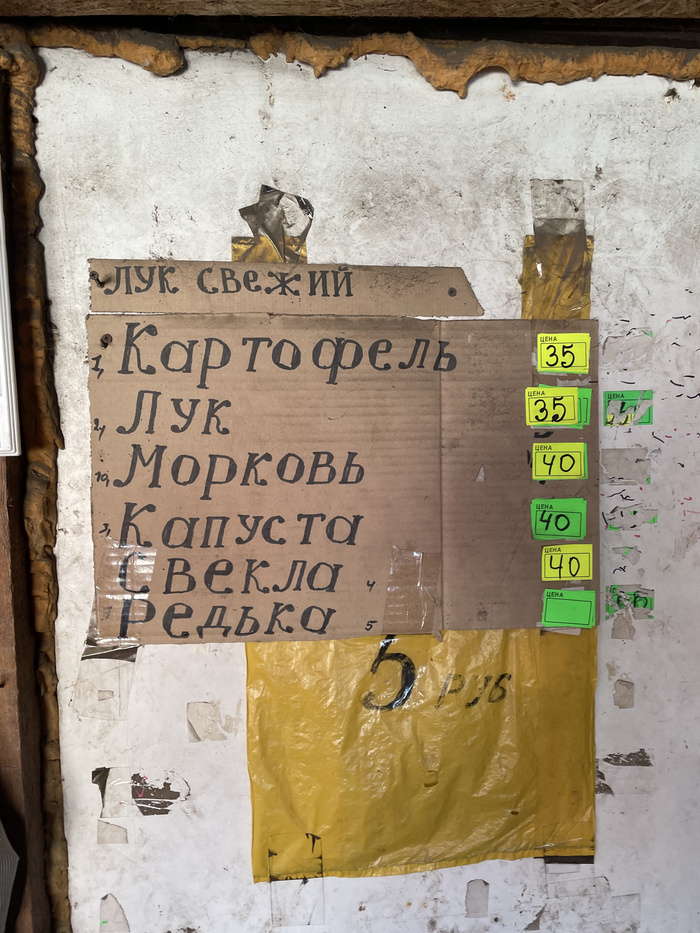 ЛУК СВЕЖИЙ
КАРТОФЕЛЬ ЦЕНА 35
ЛУК ЦЕНА 35 ЦЕНА
МОРКОВЬ ЦЕНА 40
КАПУСТА ЦЕНА 40
СВЕКЛА 4 ЦЕНА 40
РЕДЬКА 5 ЦЕНА
5 РУБ